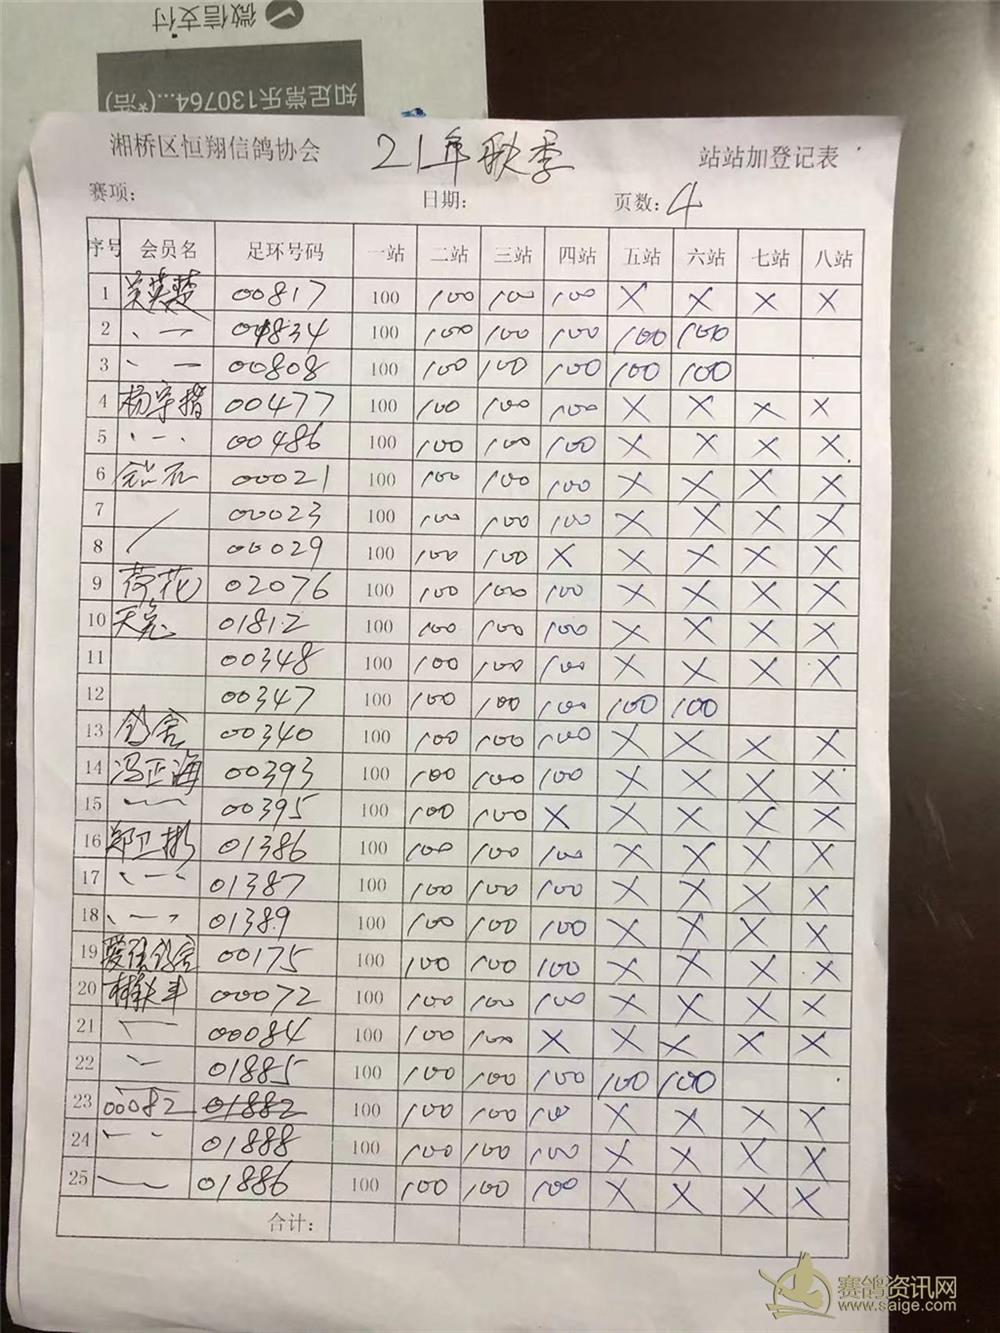 微信支付
知足常乐130764...(*浩)
湘桥区恒翔信鸽协会 21年秋季 站站加登记表
赛项: 日期: 页数: 4
序号 会员名 足环号码 一站 二站 三站 四站 五站 六站 七站 八站
1 吴英楚 00817 100 100 100 100 X X X X
2 、一 00834 100 100 100 100 100 100
3 、一 00808 100 100 100 100 100 100
4 杨宇 00477 100 100 100 100 X X X X
5 、一、 00486 100 100 100 100 X X X X
6 00021 100 100 100 100 X X X X
7 00023 100 100 100 100 X X X X
8 00029 100 100 100 X X X X X
9 荷花 02076 100 100 100 100 X X X X
10 天宠 01812 100 100 100 100 X X X X
11 00348 100 100 100 100 X X X X
12 00347 100 100 100 100 100 100
13 鸽舍 00340 100 100 100 100 X X X X
14 冯正海 00393 100 100 100 100 X X X X
15 00395 100 100 100 X X X X X
16 郑卫彬 01386 100 100 100 100 X X X X
17 、一、 01387 100 100 100 100 X X X X
18 、一、 01389 100 100 100 100 X X X X
19 鸽舍 00175 100 100 100 100 X X X X
20 00072 100 100 100 100 X X X X
21 00084 100 100 100 X X X X X
22 01885 100 100 100 100 100 100
23 00082 01882 100 100 100 100 X X X X
24 01888 100 100 100 100 X X X X
25 01886 100 100 100 100 X X X X
合计:
赛鸽资讯网
www.saige.com